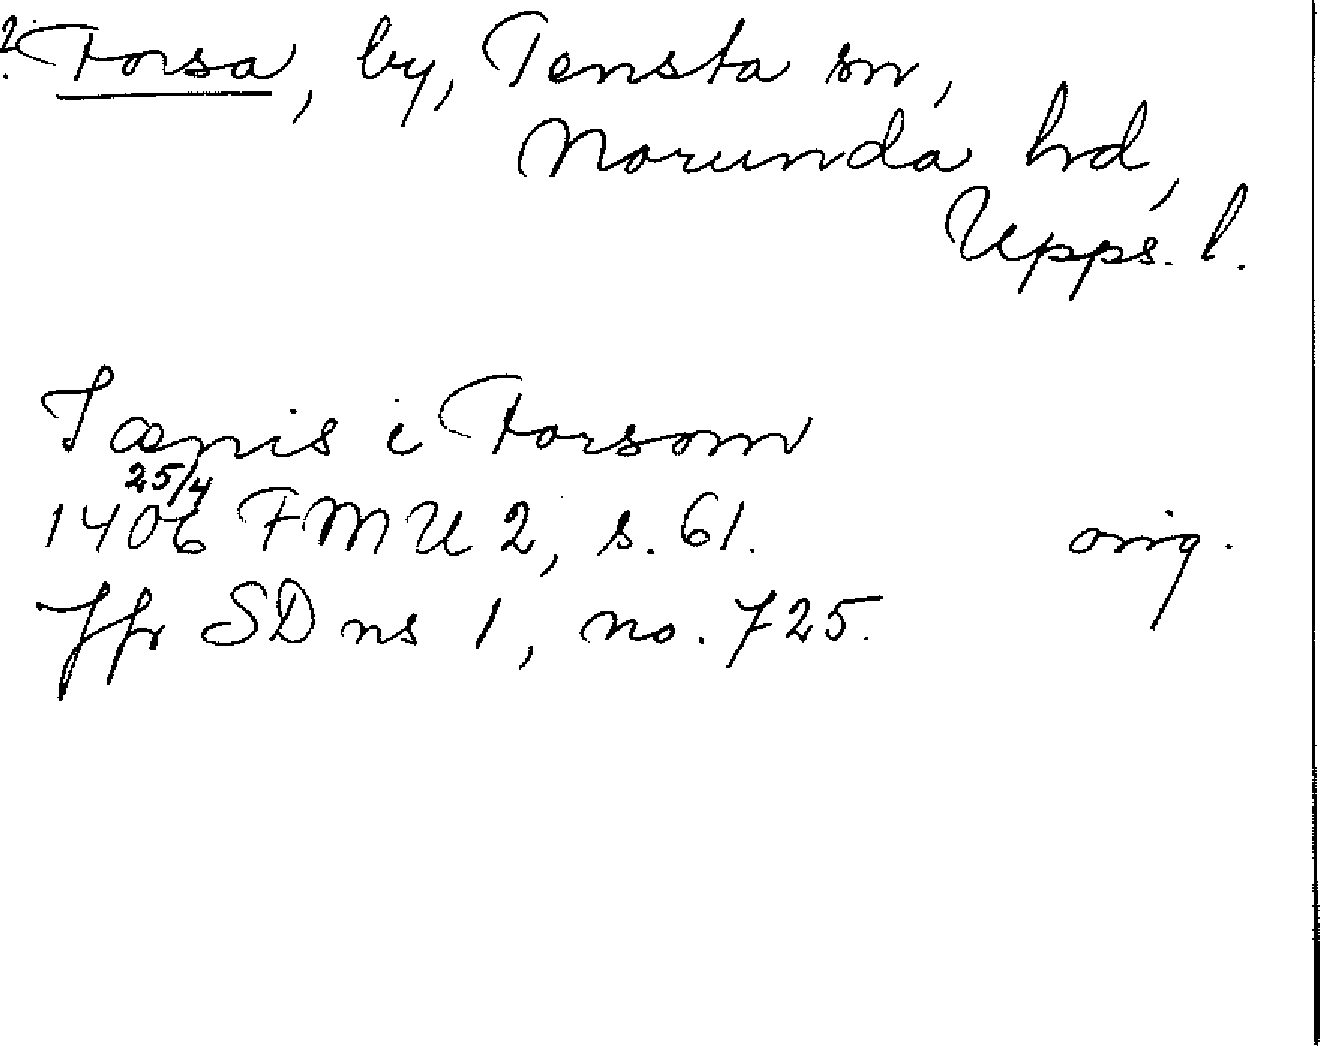 ? Forsa, by, Tensta sn,
Norunda hd,
Upps. l.
Jænis i Forsom
25/4
1406 FMU 2, s. 61. orig.
Jfr SD ns 1, no. 725.